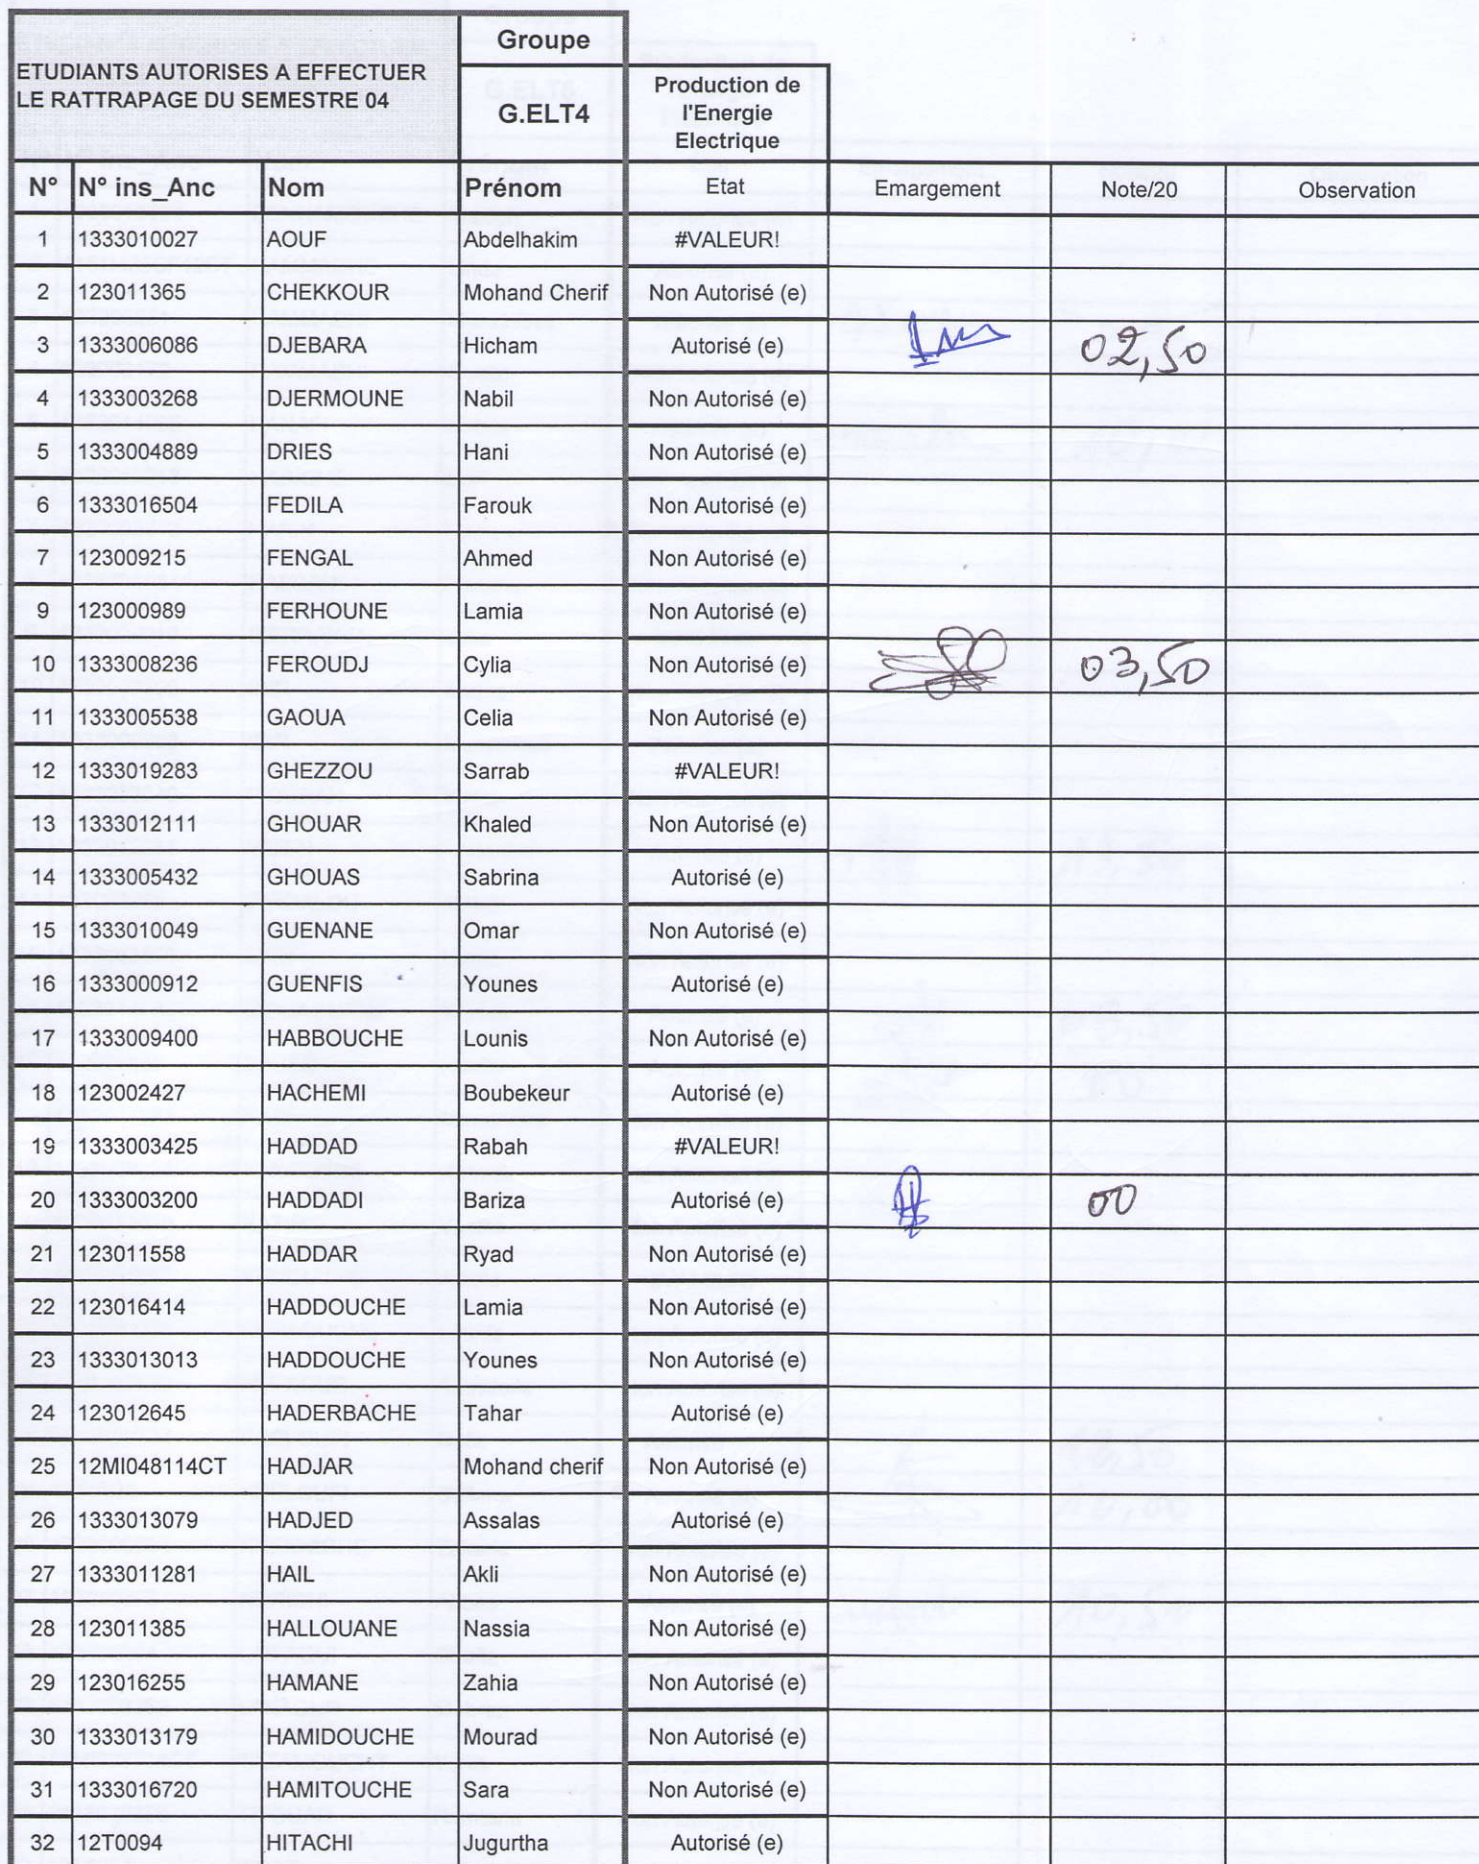 Groupe
ETUDIANTS AUTORISES A EFFECTUER
LE RATTRAPAGE DU SEMESTRE 04
G.ELT4
Production de
l'Energie
Electrique
N° N° ins_Anc Nom Prénom Etat Emargement Note/20 Observation
1 1333010027 AOUF Abdelhakim #VALEUR!
2 123011365 CHEKKOUR Mohand Cherif Non Autorisé (e)
3 1333006086 DJEBARA Hicham Autorisé (e) 02,50
4 1333003268 DJERMOUNE Nabil Non Autorisé (e)
5 1333004889 DRIES Hani Non Autorisé (e)
6 1333016504 FEDILA Farouk Non Autorisé (e)
7 123009215 FENGAL Ahmed Non Autorisé (e)
9 123000989 FERHOUNE Lamia Non Autorisé (e)
10 1333008236 FEROUDJ Cylia Non Autorisé (e) 03,50
11 1333005538 GAOUA Celia Non Autorisé (e)
12 1333019283 GHEZZOU Sarrab #VALEUR!
13 1333012111 GHOUAR Khaled Non Autorisé (e)
14 1333005432 GHOUAS Sabrina Autorisé (e)
15 1333010049 GUENANE Omar Non Autorisé (e)
16 1333000912 GUENFIS Younes Autorisé (e)
17 1333009400 HABBOUCHE Lounis Non Autorisé (e)
18 123002427 HACHEMI Boubekeur Autorisé (e)
19 1333003425 HADDAD Rabah #VALEUR!
20 1333003200 HADDADI Bariza Autorisé (e) 00
21 123011558 HADDAR Ryad Non Autorisé (e)
22 123016414 HADDOUCHE Lamia Non Autorisé (e)
23 1333013013 HADDOUCHE Younes Non Autorisé (e)
24 123012645 HADERBACHE Tahar Autorisé (e)
25 12MI048114CT HADJAR Mohand cherif Non Autorisé (e)
26 1333013079 HADJED Assalas Autorisé (e)
27 1333011281 HAIL Akli Non Autorisé (e)
28 123011385 HALLOUANE Nassia Non Autorisé (e)
29 123016255 HAMANE Zahia Non Autorisé (e)
30 1333013179 HAMIDOUCHE Mourad Non Autorisé (e)
31 1333016720 HAMITOUCHE Sara Non Autorisé (e)
32 12T0094 HITACHI Jugurtha Autorisé (e)